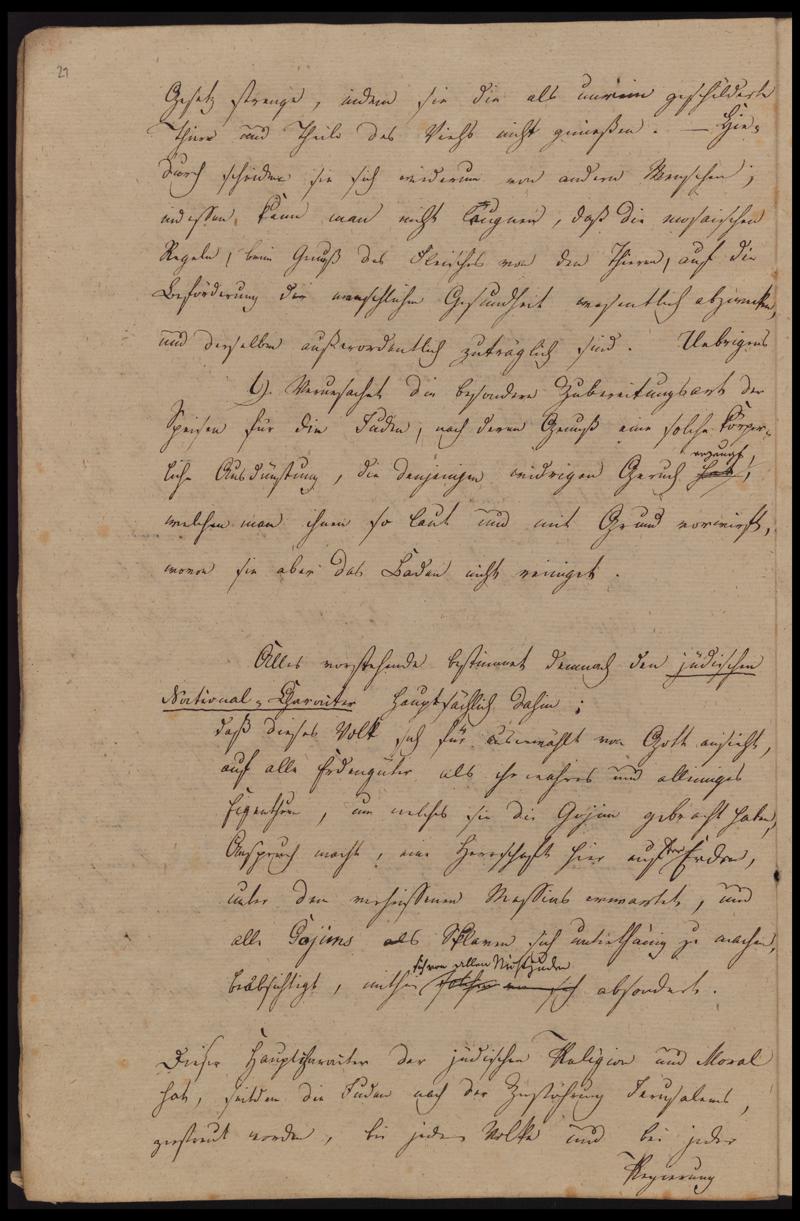 29
Gesetz strenge, indem sie die als unrein geschilderte
Thiere und Theile des Viehs nicht genießen. — Hie-
durch scheiden sie sich wiederum von andern Menschen;
indessen kann man nicht läugnen, daß die mosaischen
Regeln, beim Genuß des Fleisches von den Thieren, auf die
Beförderung der menschlichen Gesundheit wesentlich abzwecken,
und derselben außerordentlich zuträglich sind. Uebrigens
Verursachet die besondere Zubereitungsart der
Speisen für die Juden, nach deren Genuß eine solche körper-
liche Ausdünstung, die denjenigen widrigen Geruch erzeugt,
welchen man ihnen so laut und mit Grund vorwirft,
wovon sie aber das Baden nicht reiniget.
Alles vorstehende bestimmet demnach den jüdischen
National-Charakter hauptsächlich dahin:
daß dieses Volk sich für auserwählt von Gott ansieht,
auf alle Erdengüter als ihr wahres und alleiniges
Eigenthum, um welches sie die Gojim gebracht haben,
Anspruch macht, eine Herrschaft hier auf der Erden,
unter dem verheissenen Messias erwartet, und
alle Gojims als Sklaven sich unterthänig zu machen,
beabsichtigt, mithin sich von allen Nichtjuden absondert.
Dieser Hauptcharakter der jüdischen Religion und Moral
hat, seitdem die Juden nach der Zerstöhrung Jerusalems,
zerstreut worden, bei jedem Volke und bei jeder
Regierung